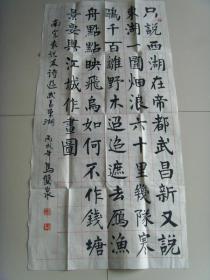 只說西湖在帝都武昌新又說
東湖一圍烟浪六十里幾隊寒
鷗千百雛野木迢迢遮去鴈漁
舟點點映飛烏如何不作錢塘
景要與江城作畫圖
南宋袁说友诗遊武昌東湖
丙戌年馬